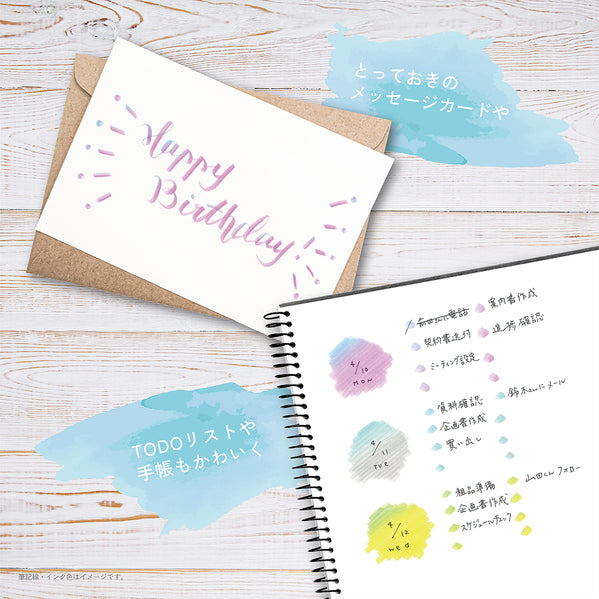 とっておきの
メッセージカードや
Happy
Birthday!
案内書作成
契約書送付
進捗確認
ミーティング設定
4/10
MON
資料確認
鈴木さんにメール
企画書作成
買い出し
4/11
TUE
粗品準備
山田くんフォロー
企画書作成
スケジュールチェック
4/12
wed
TODOリストや
手帳もかわいく
筆記線・インク色はイメージです。